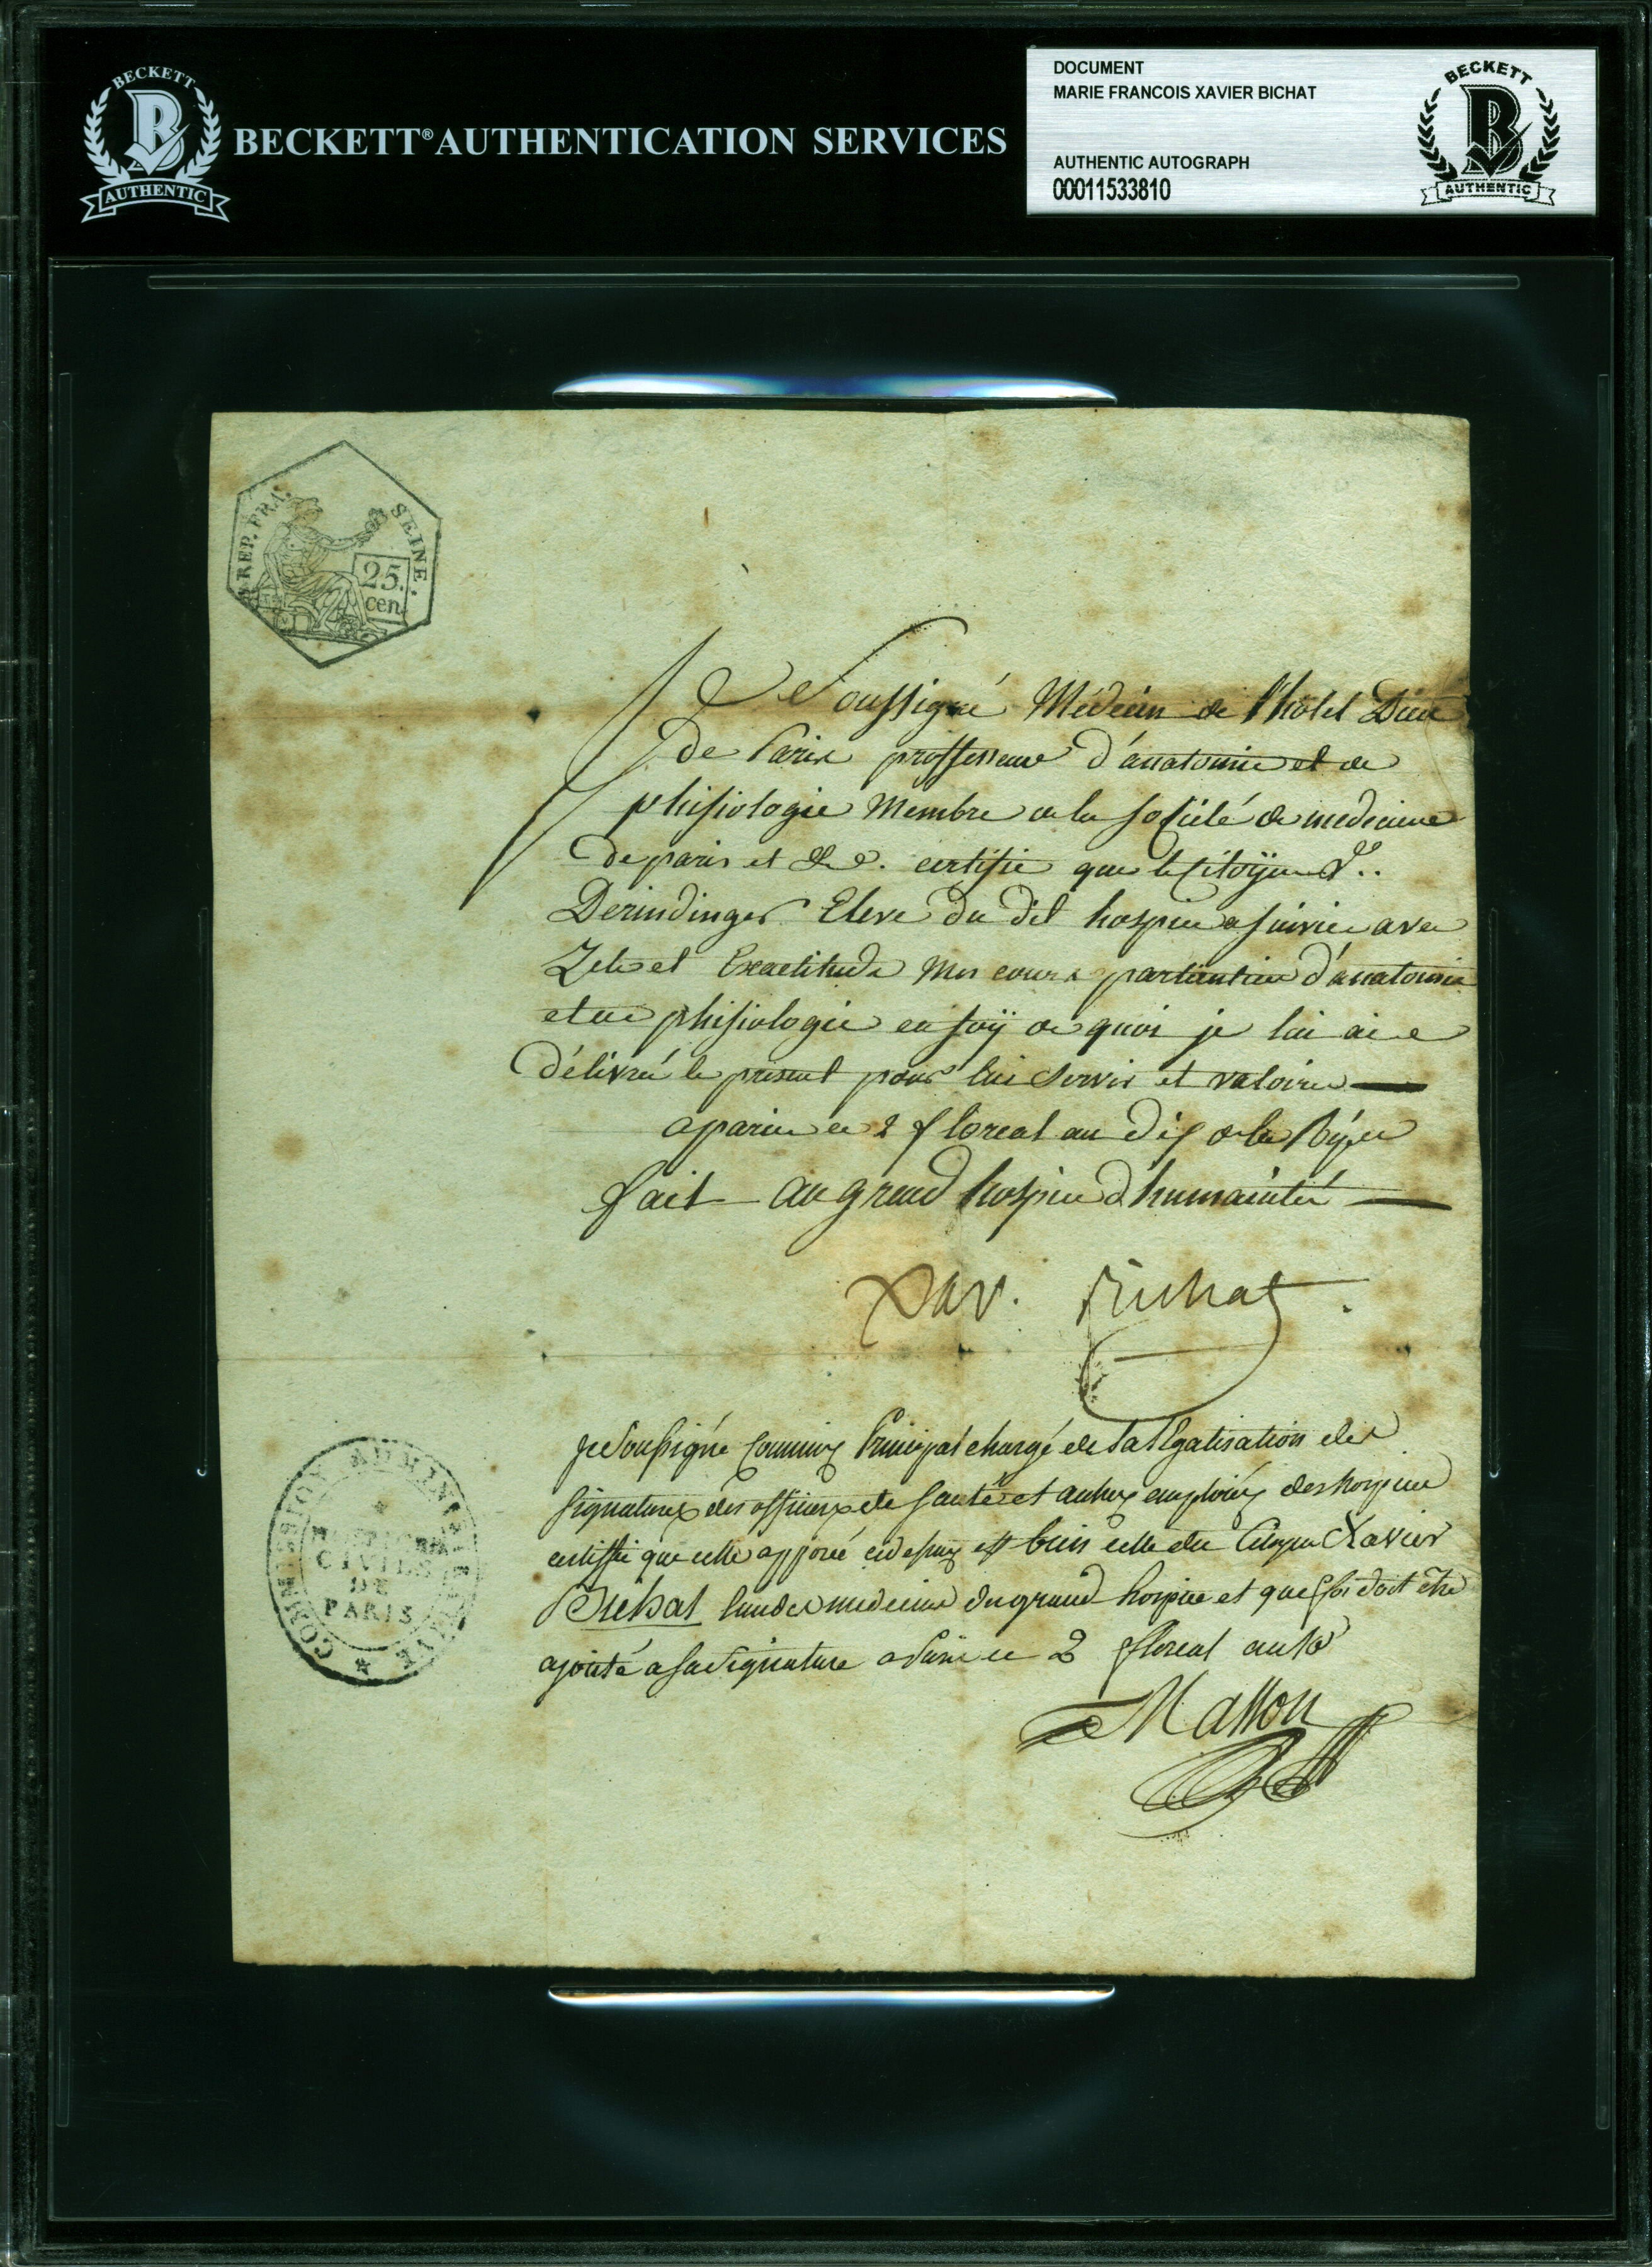 BECKETT
B
AUTHENTIC
BECKETT® AUTHENTICATION SERVICES
DOCUMENT
MARIE FRANCOIS XAVIER BICHAT
AUTHENTIC AUTOGRAPH
00011533810
BECKETT
B
AUTHENTIC
REP. FRA.
SEINE.
25.
cen.
Je Soussigné Médecin de l'hotel Dieu
de Paris proffesseur d'anatomie et de
phisiologie Membre de la société de medecine
de paris et &c. certifie que le Citoÿen
Derindinger Eleve du dit hospice a suivie avec
Zele et Exactitude Mes cours particulier d'anatomie
et de phisiologie en foÿ de quoi je lui ai
délivré le present pour lui servir et valoire
a paris ce 2 floreal an dix de la
fait au grand hospice d'humanité
Xav. Bichat.
Je Soussigné Commis Principal chargé de la légalisation des
signatures des officiers de santé et autres emploiés des hospices
certiffie que celle apposé cidessus est bien celle du Citoyen Xavier
Bichat l'un des medecins du grand hospice et que foi doit être
ajouté a sa signature a Paris ce 2 floreal an 10
Masson
COMMISSION ADMINISTRATIVE
HOSPICES
CIVILS
DE
PARIS